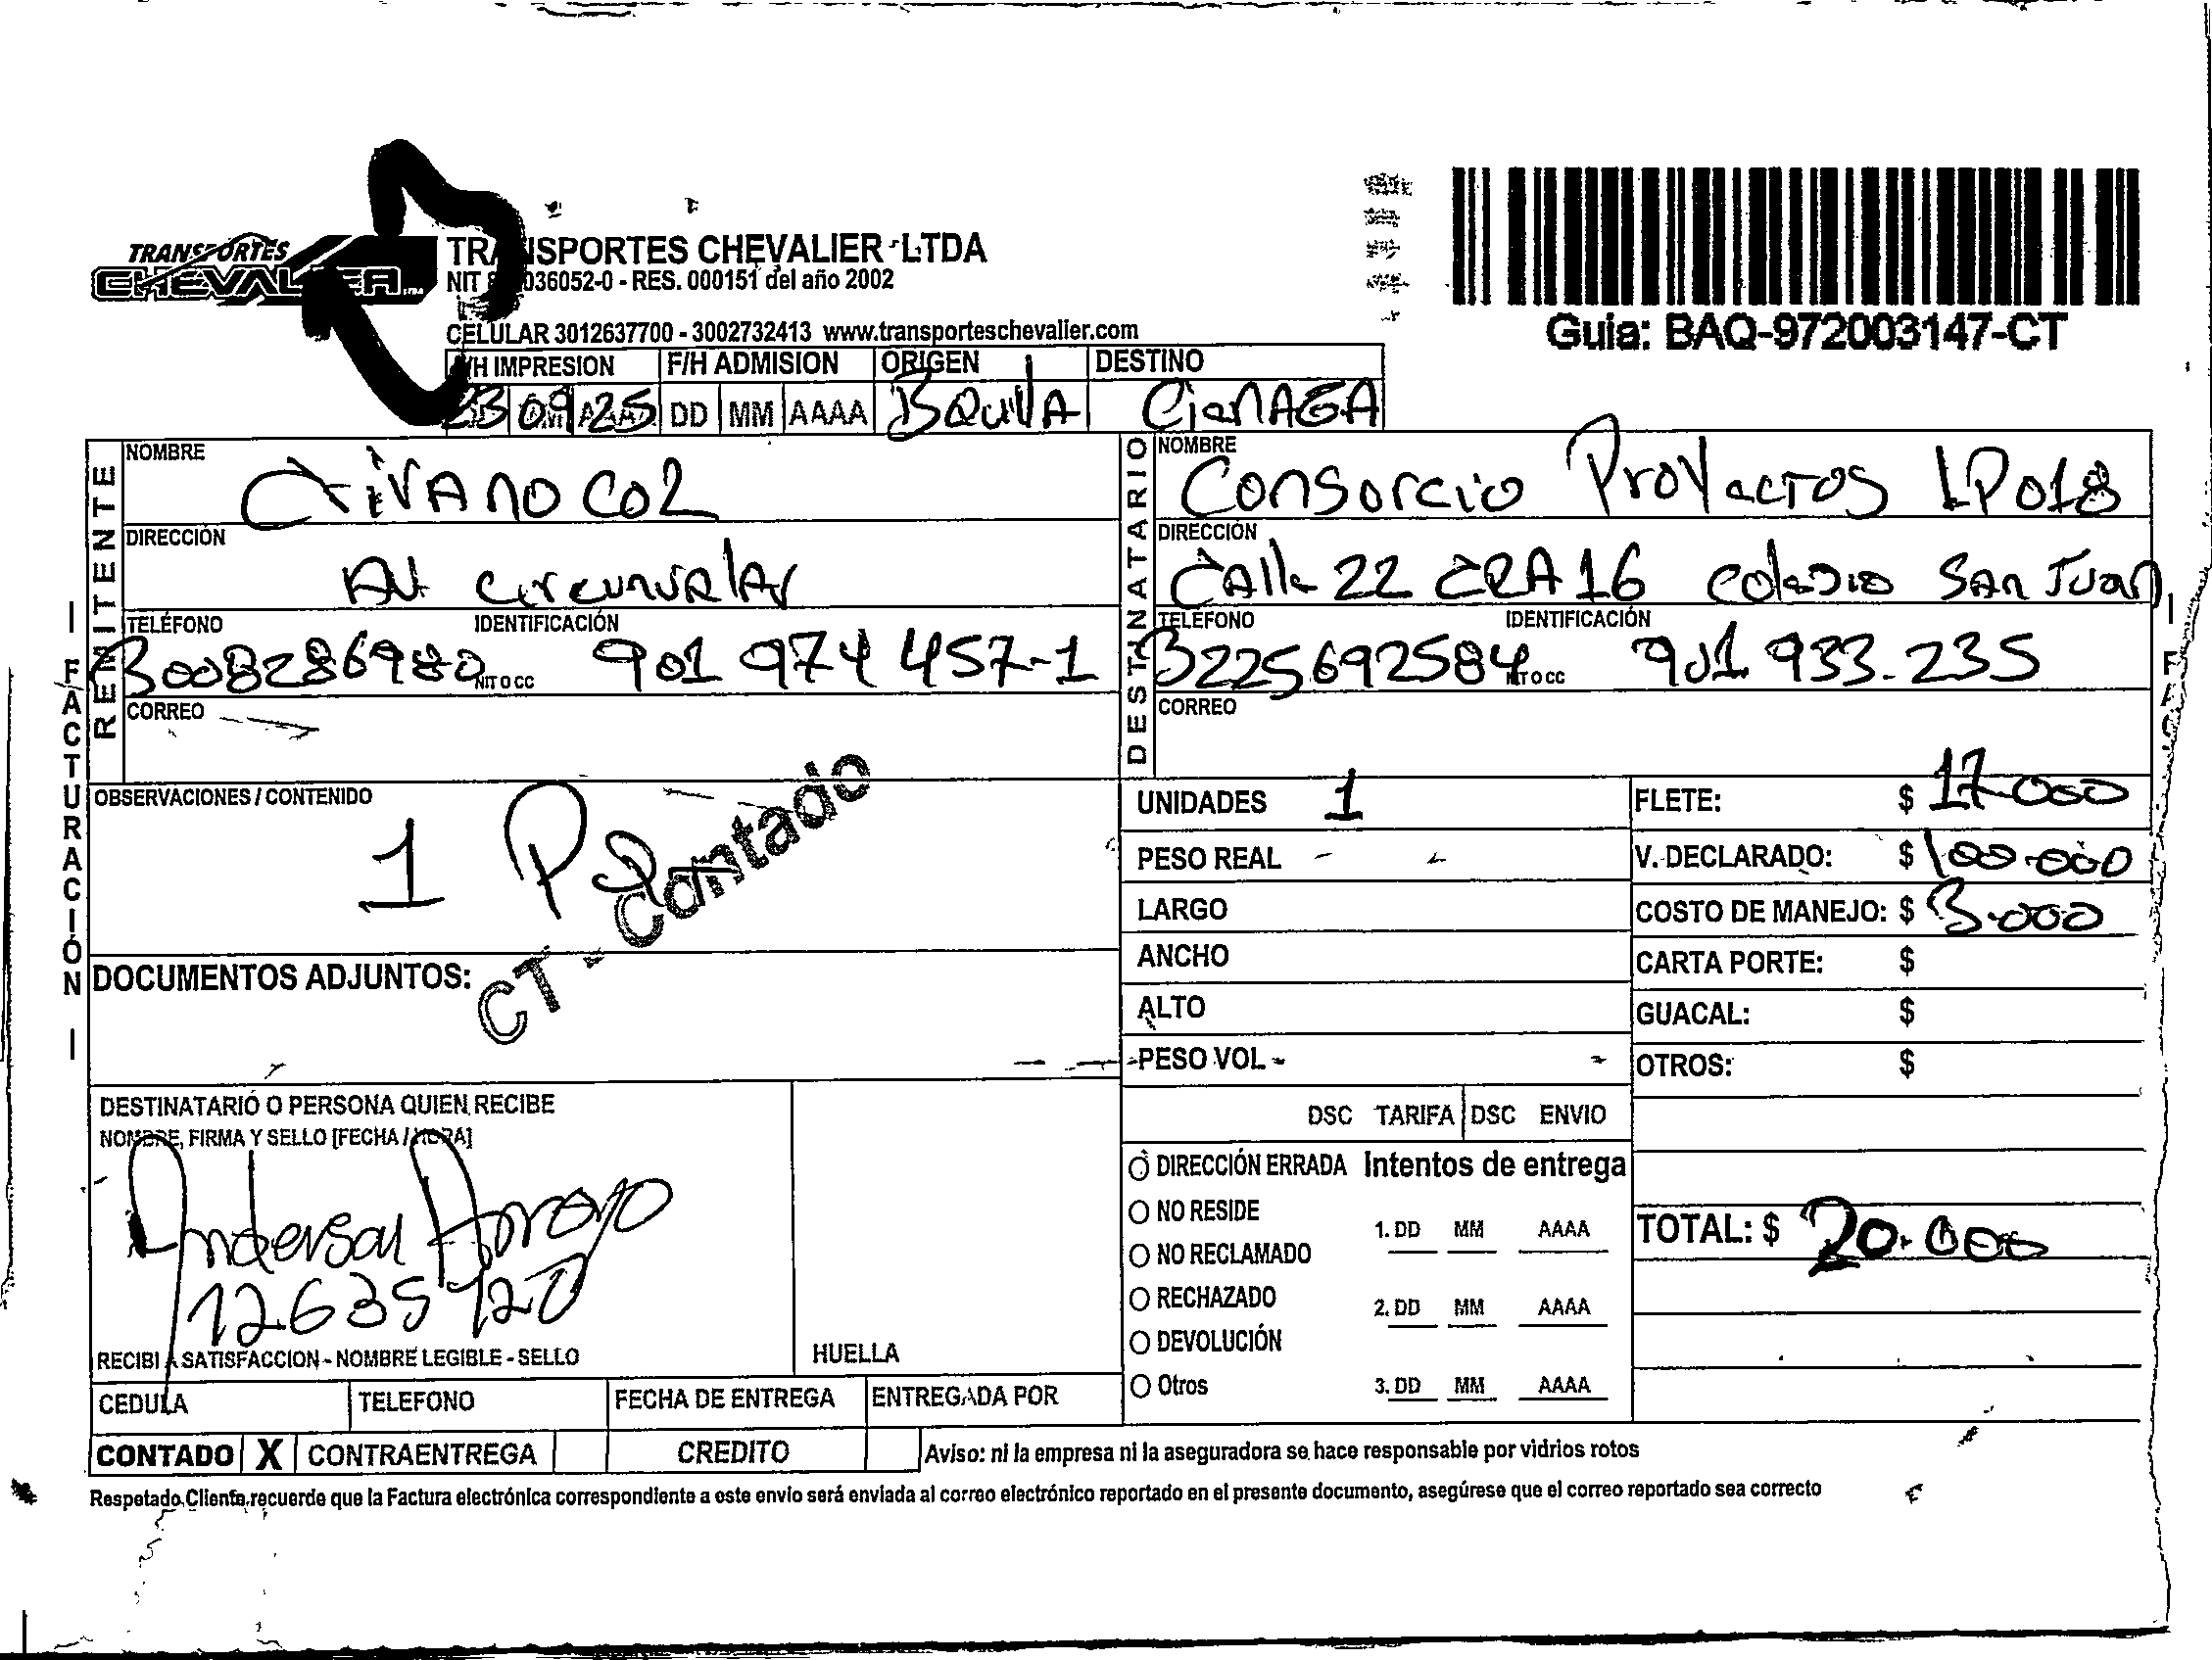 TRANSPORTES
CHEVALIER LTDA
TRANSPORTES CHEVALIER LTDA
NIT 036052-0 - RES. 000151 del año 2002
CELULAR 3012637700 - 3002732413 www.transporteschevalier.com
Guia: BAQ-972003147-CT
F/H IMPRESION F/H ADMISION ORIGEN DESTINO
23 09 25 DD MM AAAA BQuillA CienAGA
REMITENTE
NOMBRE
CiVANO COL
DIRECCIÓN
AV circunvalar
TELÉFONO IDENTIFICACIÓN
3008286980 NIT O CC 901 974 457-1
CORREO
DESTINATARIO
NOMBRE
Consorcio Proyectos LP018
DIRECCIÓN
CAlle 22 CRA 16 colegio SAn Juan
TELEFONO IDENTIFICACIÓN
3225692584 NIT O CC 901 933.235
CORREO
| FACTURACIÓN |
| FAC
OBSERVACIONES / CONTENIDO
1
CT - Contado
DOCUMENTOS ADJUNTOS:
UNIDADES 1
PESO REAL
LARGO
ANCHO
ALTO
PESO VOL
FLETE: $ 17.000
V. DECLARADO: $ 100.000
COSTO DE MANEJO: $ 3.000
CARTA PORTE: $
GUACAL: $
OTROS: $
TOTAL: $ 20.000
DSC TARIFA DSC ENVIO
DIRECCIÓN ERRADA Intentos de entrega
NO RESIDE
1. DD MM AAAA
NO RECLAMADO
RECHAZADO
2. DD MM AAAA
DEVOLUCIÓN
Otros 3. DD MM AAAA
DESTINATARIO O PERSONA QUIEN RECIBE
NOMBRE, FIRMA Y SELLO [FECHA / HORA]
Anderson Arroyo
12635120
RECIBI A SATISFACCION - NOMBRE LEGIBLE - SELLO
HUELLA
CEDULA TELEFONO FECHA DE ENTREGA ENTREGADA POR
CONTADO X CONTRAENTREGA CREDITO
Aviso: ni la empresa ni la aseguradora se hace responsable por vidrios rotos
Respetado Cliente, recuerde que la Factura electrónica correspondiente a este envío será enviada al correo electrónico reportado en el presente documento, asegúrese que el correo reportado sea correcto